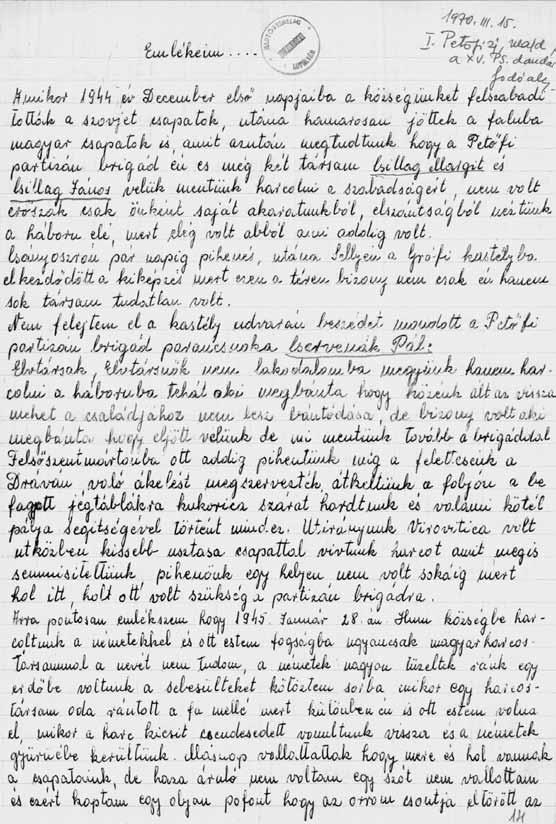 1970. III. 15.
I. Petőfizj, majd,
a XV. PS. dandár
Emlékeim....
Amikor 1944 év December első napjaiba a községünket felszabadi
tották a szovjet csapatok, utána hamarosan jöttek a faluba
magyar csapatok is, amit azután megtudtunk hogy a Petőfi
partizán brigád én és még két társam Csillag Margit és
Csillag János velük mentünk harcolni a szabadságért, nem volt
erőszak csak önként saját akaratunkból, elszántságból néztünk
a háboru elé, mert elég volt abból ami addig volt.
Csányoszrón pár napig pihenés, utána Sellyén a Gróffi kastélyba
elkezdődött a kiképzés mert ezen a téren bizony nem csak én hanem
sok társam tudatlan volt.
Nem felejtem el a kastély udvarán beszédet mondott a Petőfi
partizán brigád parancsnoka Cservenák Pál:
Elvtársak, Elvtársnők nem lakodalomba megyünk hanem har-
colni a háboruba tehát aki megbánta hogy közénk állt az vissza
mehet a családjához nem lesz bántódása, de bizony volt aki
megbánta hogy eljött velünk de mi mentünk tovább a brigáddal
Felsőszentmártonba ott addig pihentünk mig a feletteseink a
Dráván való átkelést megszervezték, átkeltünk a folyón a be
fagyott jégtáblákra kukorica szárat hordtunk és valami kötél
pálya segitségével történt mindez. Utirányunk Virovitica volt
utközben kissebb usztasa csapattal vivtunk harcot amit mégis
semmisitettünk, pihenőnk egy helyen nem volt sokáig mert
hol itt, holt ott volt szükség a partizán brigádra.
Arra pontosan emlékszem hogy 1945. Január 28. án Hum községbe har-
coltunk a németekkel és ott estem fogságba ugyancsak magyar harcos-
társammal a nevét nem tudom, a németek nagyon tüzeltek ránk egy
erdőbe voltunk a sebesülteket kötöztem sorba mikor egy harcos-
társam oda rántott a fa mellé mert különben én is ott estem volna
el, mikor a harc kicsit csendesedett vonultunk vissza és a németek
gyürüébe kerültünk. Másnap vallattattak hogy merre és hol vannak
a csapataink, de haza áruló nem voltam egy szót nem vallottam
és ezért kaptam egy olyan pofont hogy az orrom csontja eltörött az
14